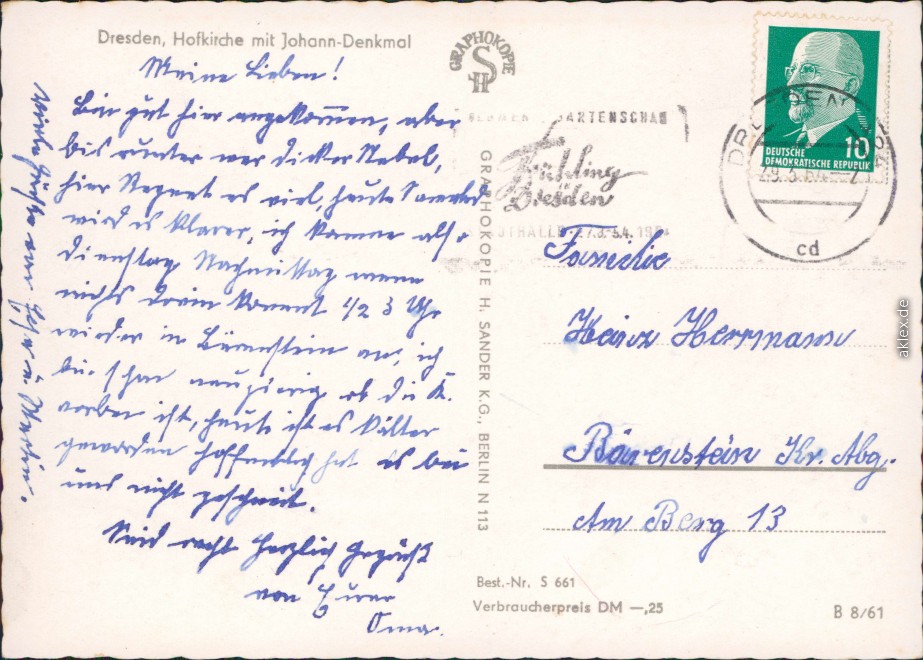 Dresden, Hofkirche mit Johann-Denkmal
Meine Lieben!
Bin gut hier angekommen, aber
bis runter war dicker Nebel,
hier Regnet es viel, heute Sonnabd
wird es klarer, ich komme also
Dienstag Nachmittag wenn
nichts drein kommt 1/2 3 Uhr
wieder in Bärenstein an, ich
bin schon neugierig ob die K.
worden ist, heute ist es kälter
geworden hoffentlich hat es bei
uns nicht geschneit.
Seid recht herzlich gegrüßt
von Eurer
Oma.
Viele Grüße von
Martin.
GRAPHOKOPIE
SH
GRAPHOKOPIE H. SANDER K.G., BERLIN N 113
GARTENSCHAU
Frühling
in
Dresden
27.3.-5.4. 1964
DEUTSCHE
DEMOKRATISCHE REPUBLIK
10
cd
Familie
Heinz Herrmann
Bärenstein Kr. Abg.
Am Berg 13
Best.-Nr. S 661
Verbraucherpreis DM —,25
B 8/61
aklex.de